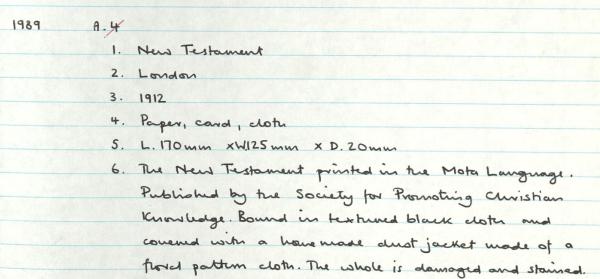 1989 A.4
1. New Testament
2. London
3. 1912
4. Paper, card, cloth
5. L. 170mm x W.125mm x D. 20mm
6. The New Testament printed in the Mota Language.
Published by the Society for Promoting Christian
Knowledge. Bound in textured black cloth and
covered with a home made dust jacket made of a
floral pattern cloth. The whole is damaged and stained.